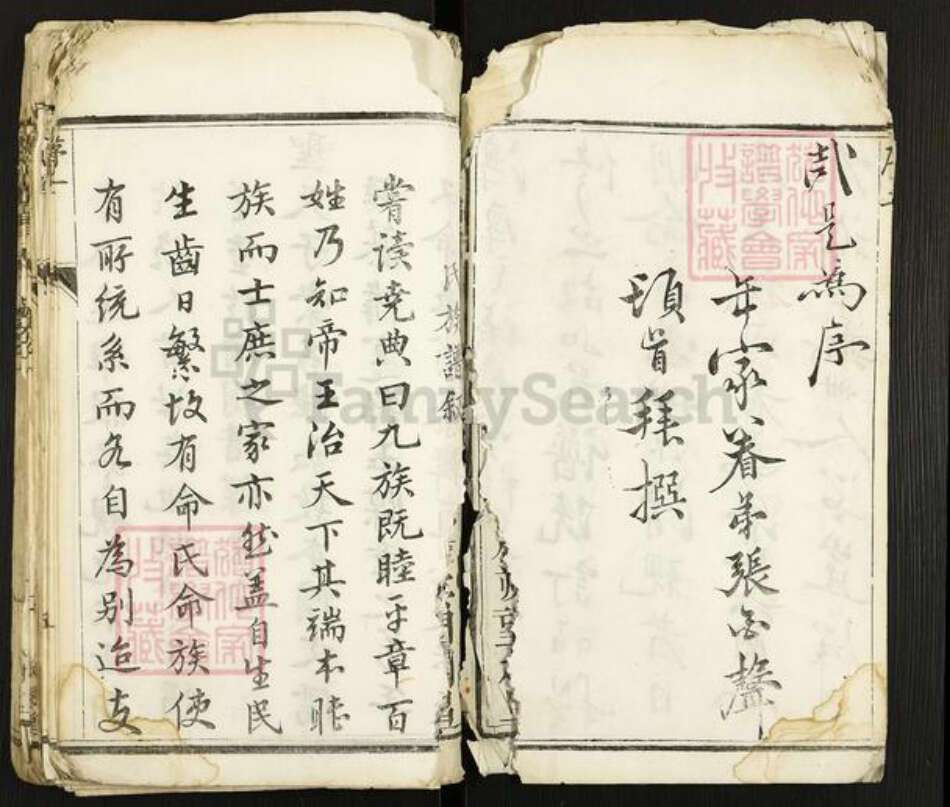 哉是為序
年家眷弟張金聲
頓首拜撰
氏族譜叙
嘗讀堯典曰九族既睦平章百
姓乃知帝王治天下其端本睦
族而士庶之家亦然蓋自生民
生齒日繁故有命氏命族使
有所統系而各自為別迨支
FamilySearch